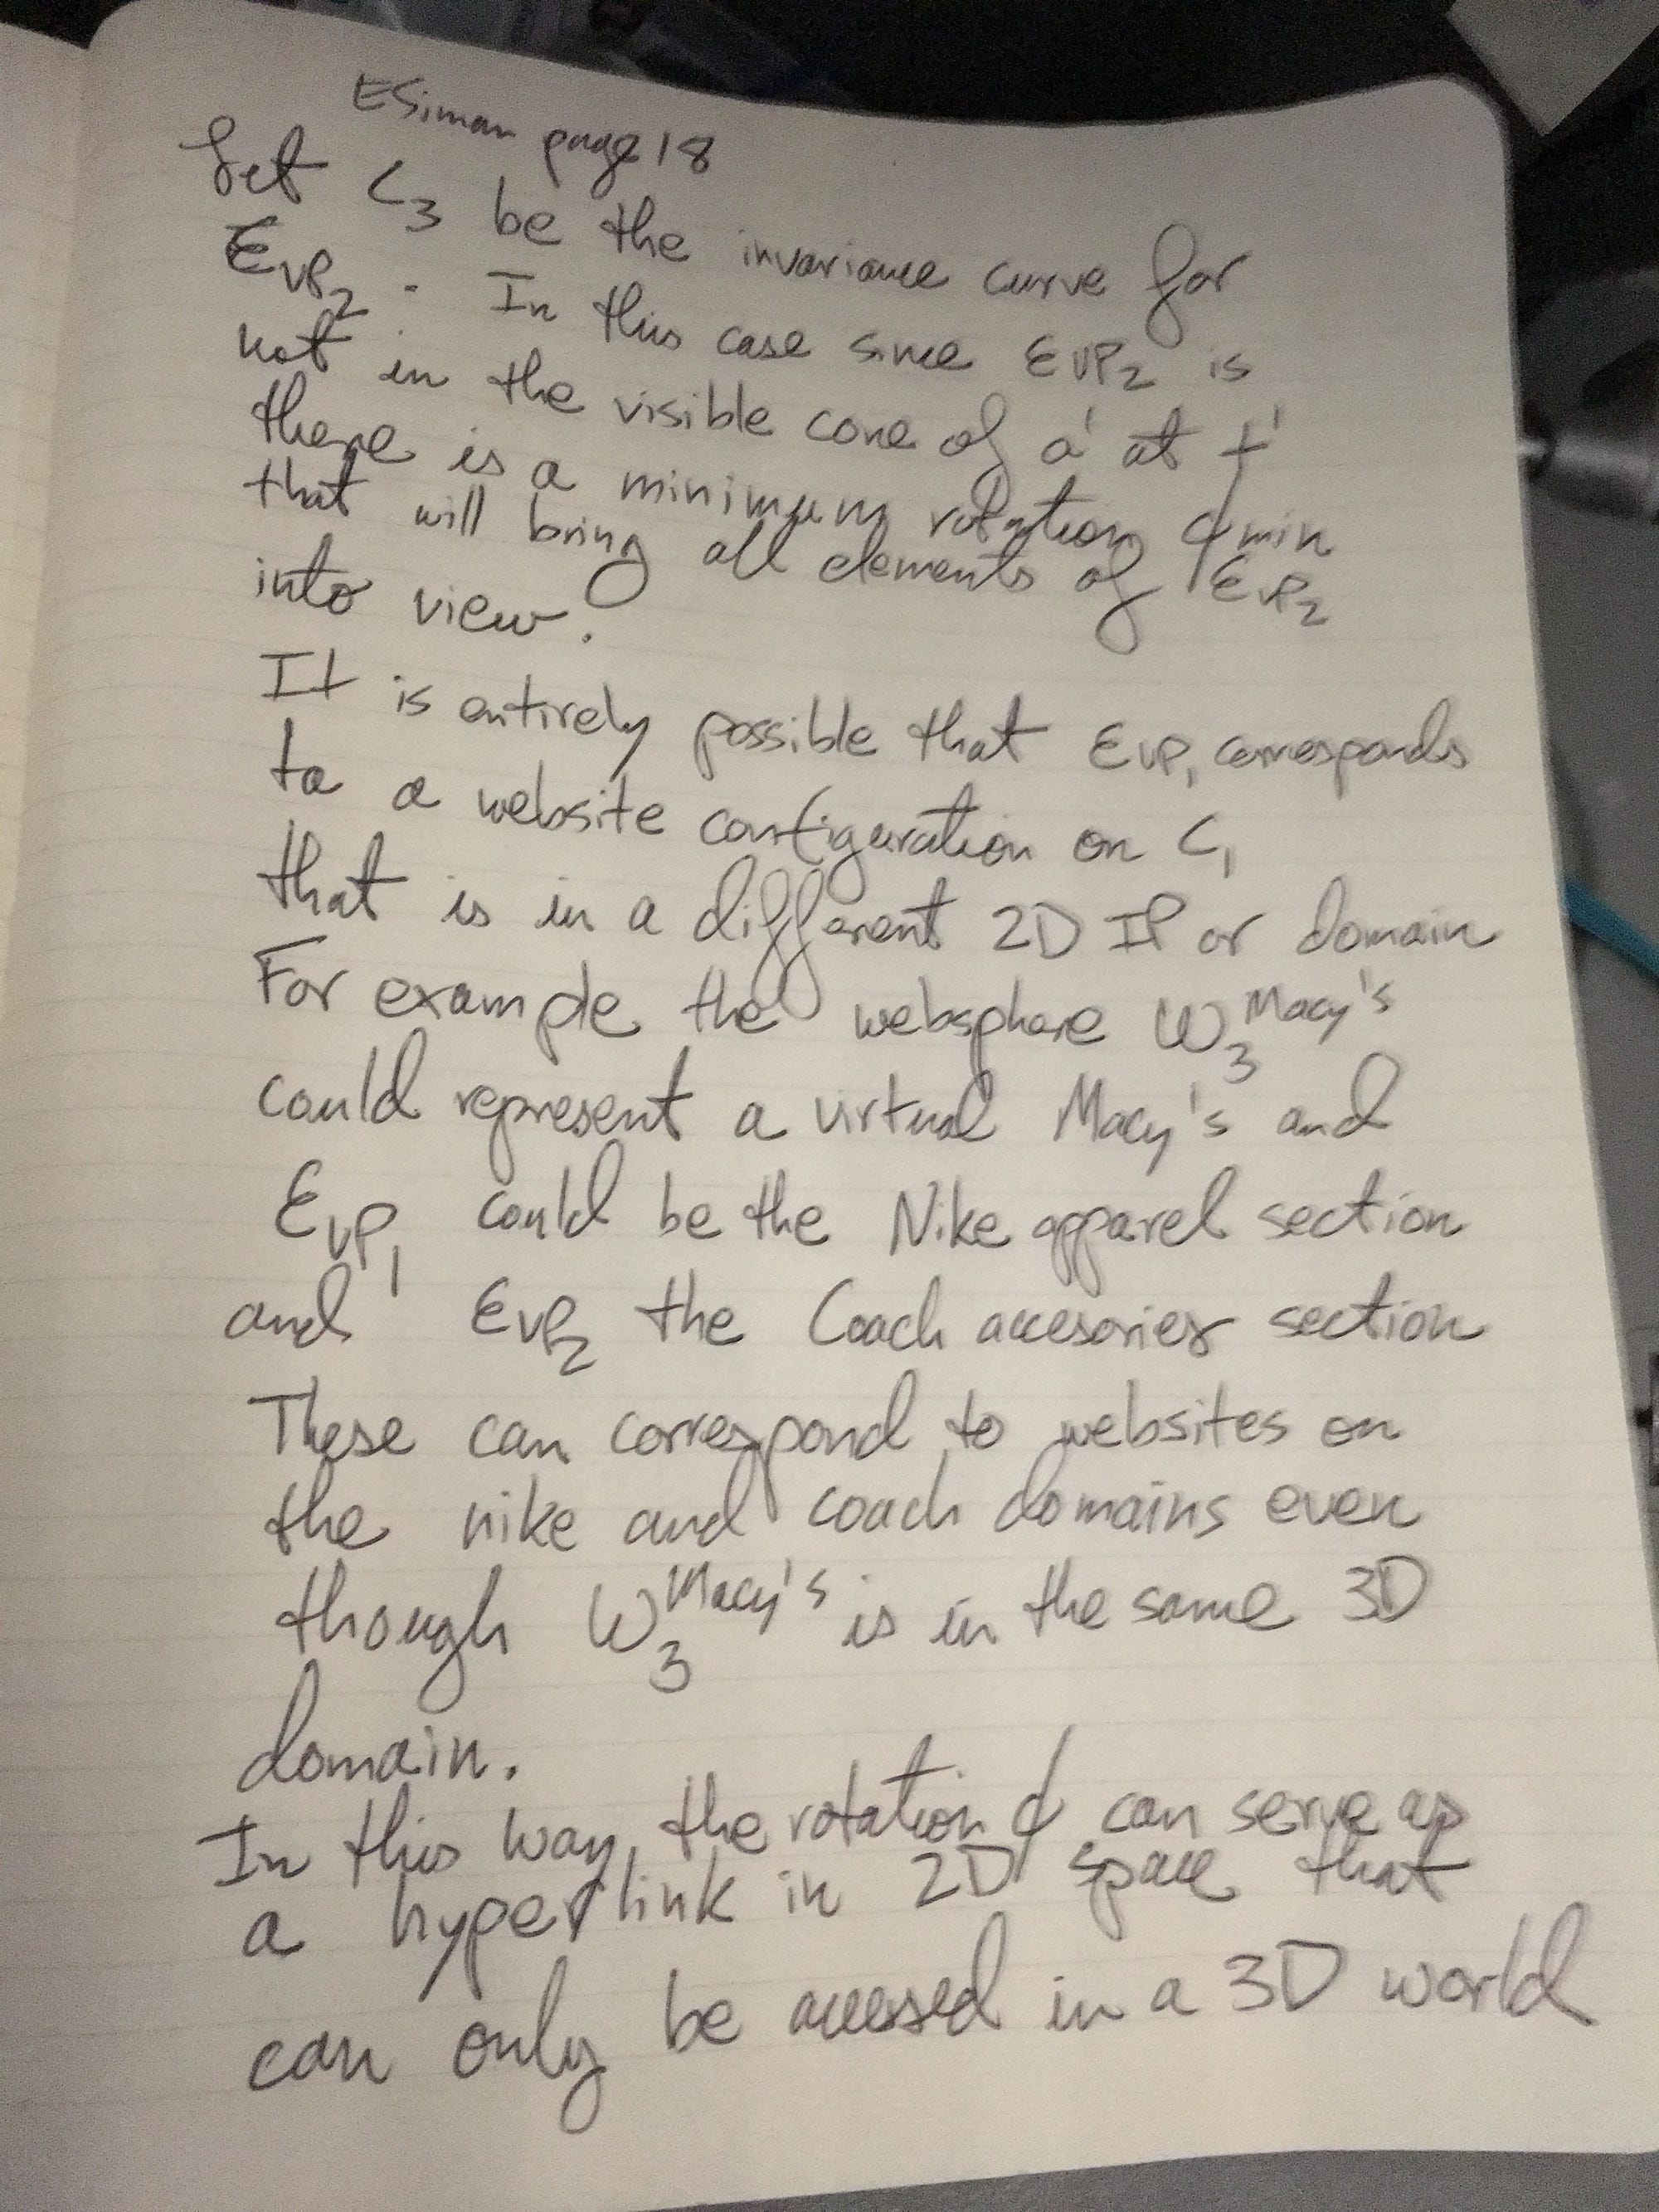 ESiman page 18
Let C₃ be the invariance curve for
EVP₂. In this case since EVP₂ is
not in the visible cone of a' at t'
there is a minimum rotation ϕmin
that will bring all elements of EVP₂
into view.
It is entirely possible that EVP₁ corresponds
to a website configuration on C₁
that is in a different 2D IP or domain
For example the websphere W₃ᴹᵃᶜʸ'ˢ
could represent a virtual Macy's and
EVP₁ could be the Nike apparel section
and EVP₂ the Coach accesories section
These can correspond to websites on
the nike and coach domains even
though W₃ᴹᵃᶜʸ'ˢ is in the same 3D
domain.
In this way, the rotation ϕ can serve as
a hyperlink in 2D space that
can only be accessed in a 3D world